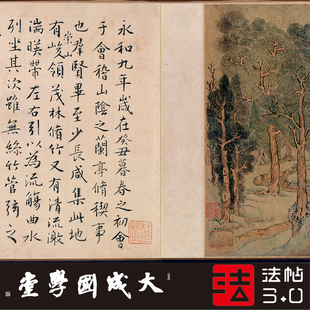 永和九年歲在癸丑暮春之初會
于會稽山陰之蘭亭脩禊事
也群賢畢至少長咸集此地
有崇山峻領茂林脩竹又有清流激
湍暎帶左右引以為流觴曲水
列坐其次雖無絲竹管弦之
大成國學堂
法
法帖
3.0